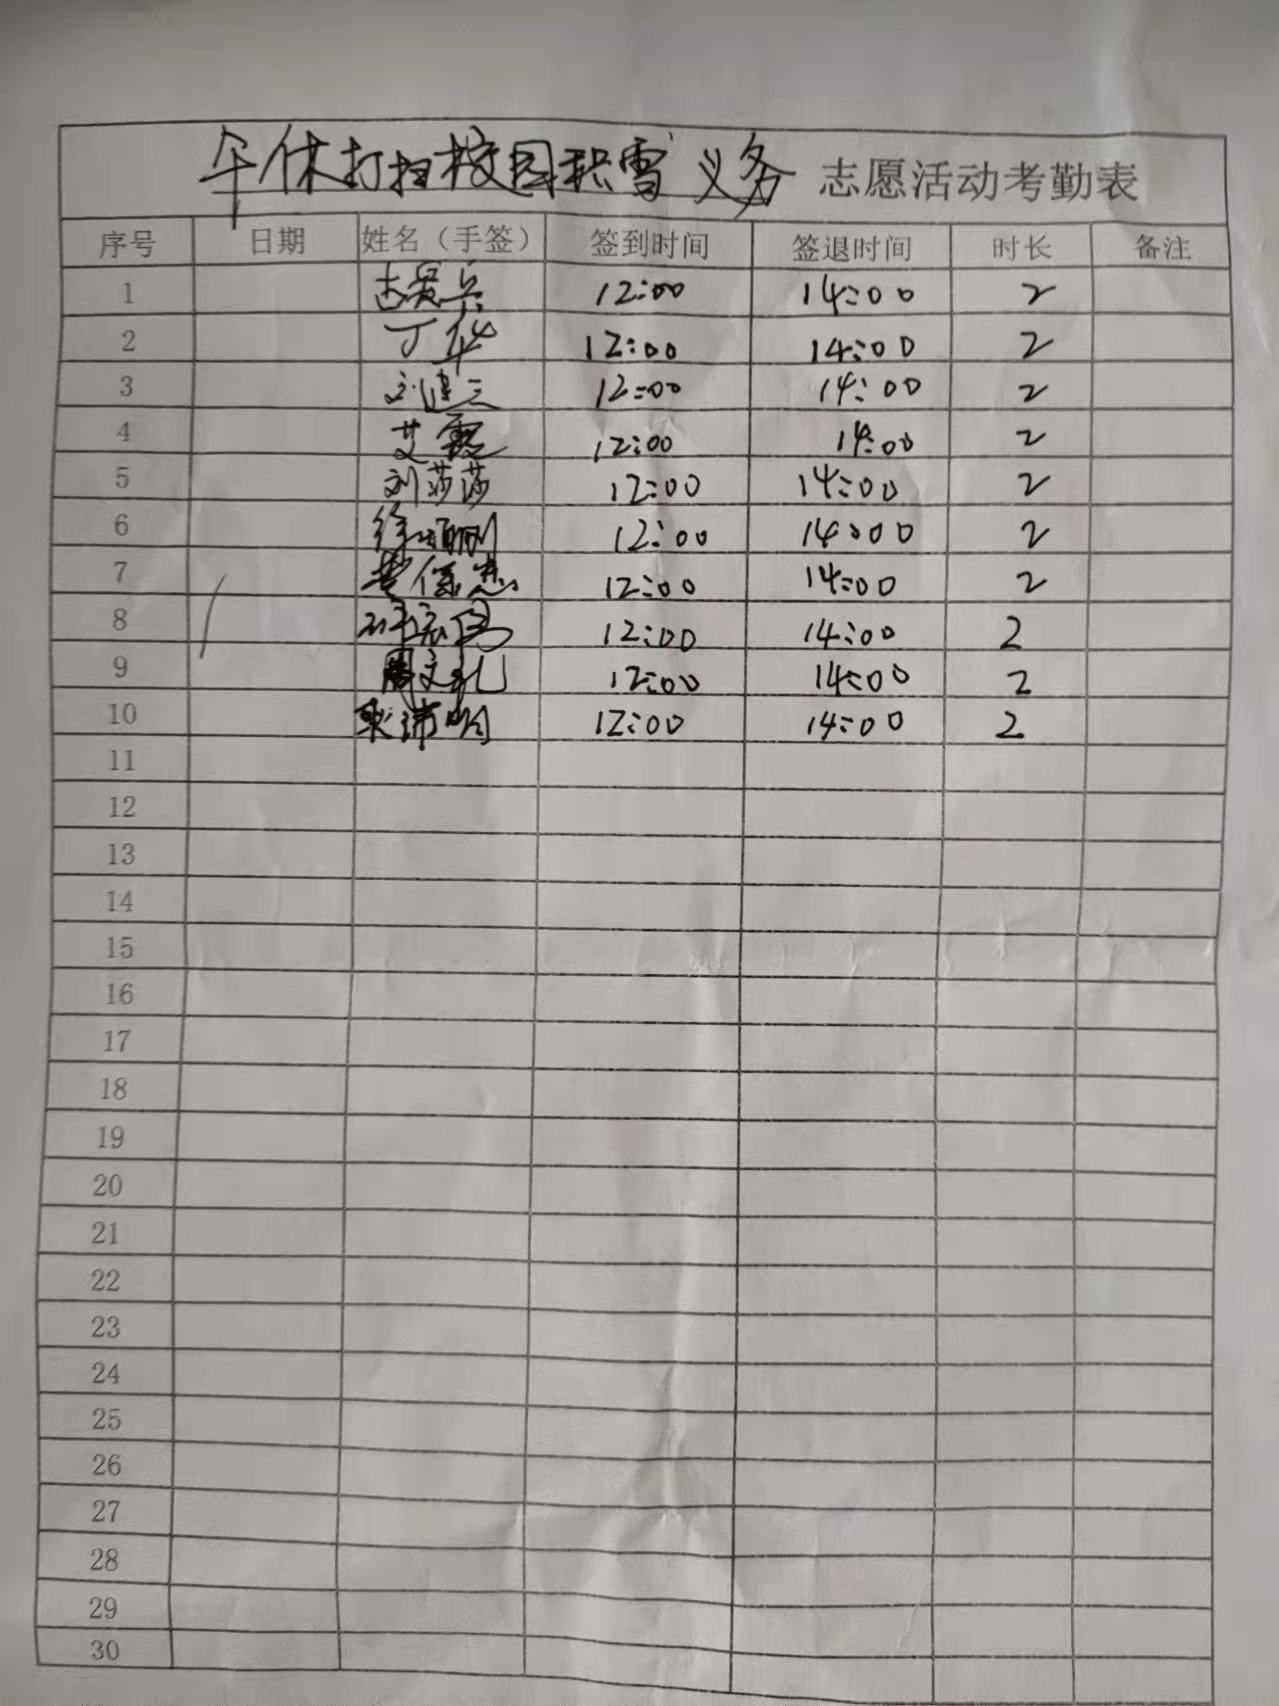 午休打扫校园积雪义务 志愿活动考勤表
序号 日期 姓名（手签） 签到时间 签退时间 时长 备注
1 12:00 14:00 2
2 丁华 12:00 14:00 2
3 刘建三 12:00 14:00 2
4 艾霞 12:00 14:00 2
5 刘莎莎 12:00 14:00 2
6 12:00 14:00 2
7 12:00 14:00 2
8 12:00 14:00 2
9 周文礼 12:00 14:00 2
10 12:00 14:00 2
11
12
13
14
15
16
17
18
19
20
21
22
23
24
25
26
27
28
29
30